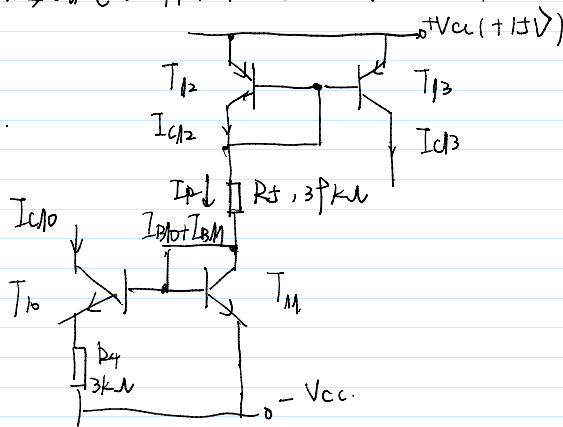 +Vcc(+15V)
T12
T13
IC12
IC13
IR
R5, 39kΩ
IC10
IB10+IB11
T10
T11
R4
3kΩ
-Vcc.